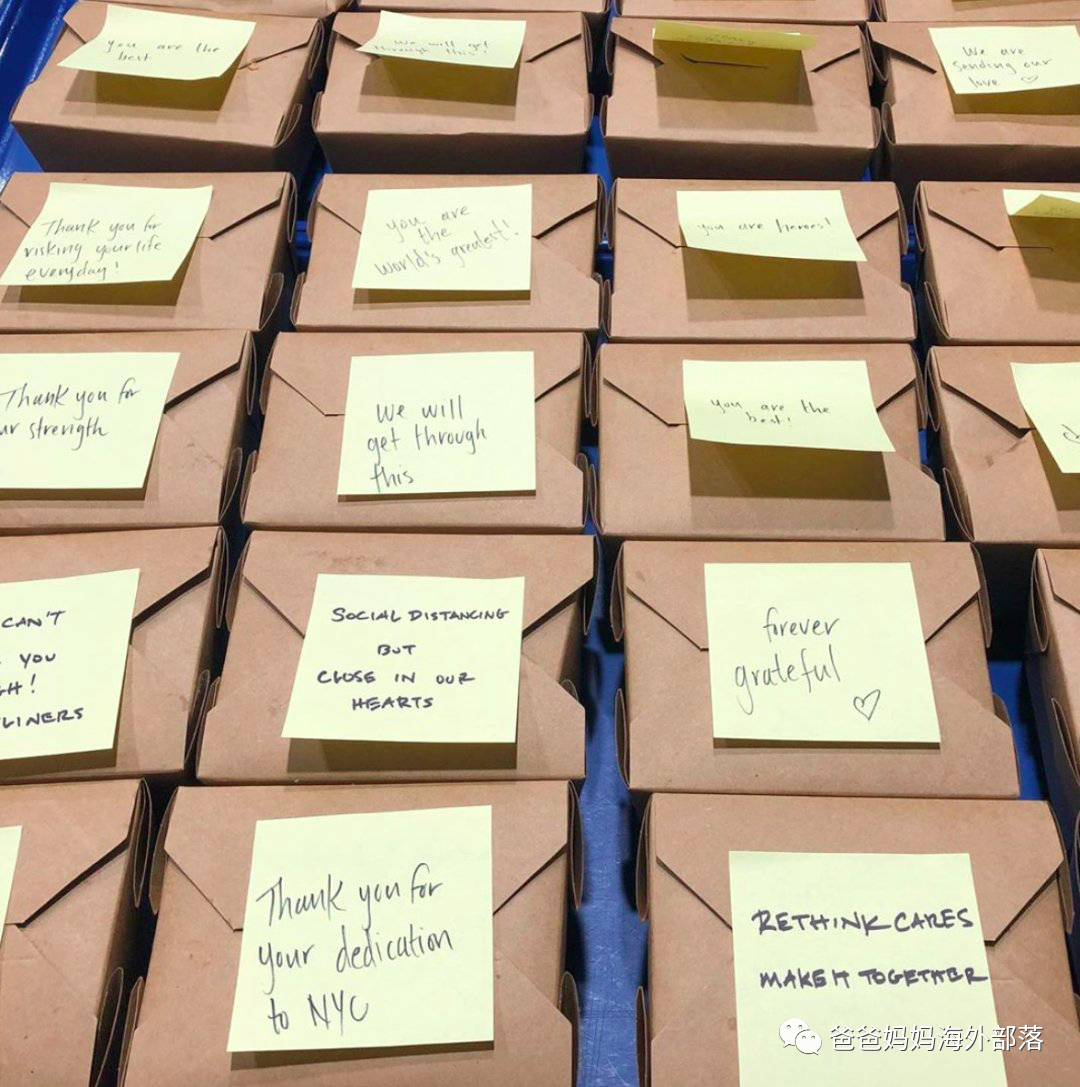 you are the
best
We will get
through this!
We are
sending our
love ♡
Thank you for
risking your life
everyday!
you are
the
world's greatest!
you are heroes!
Thank you for
ur strength
We will
get through
this
you are the
best!
CAN'T
YOU
GH!
LINERS
SOCIAL DISTANCING
BUT
CLOSE IN OUR
HEARTS
forever
grateful
♡
Thank you for
your dedication
to NYC
RETHINK CARES
MAKE IT TOGETHER
爸爸妈妈海外部落